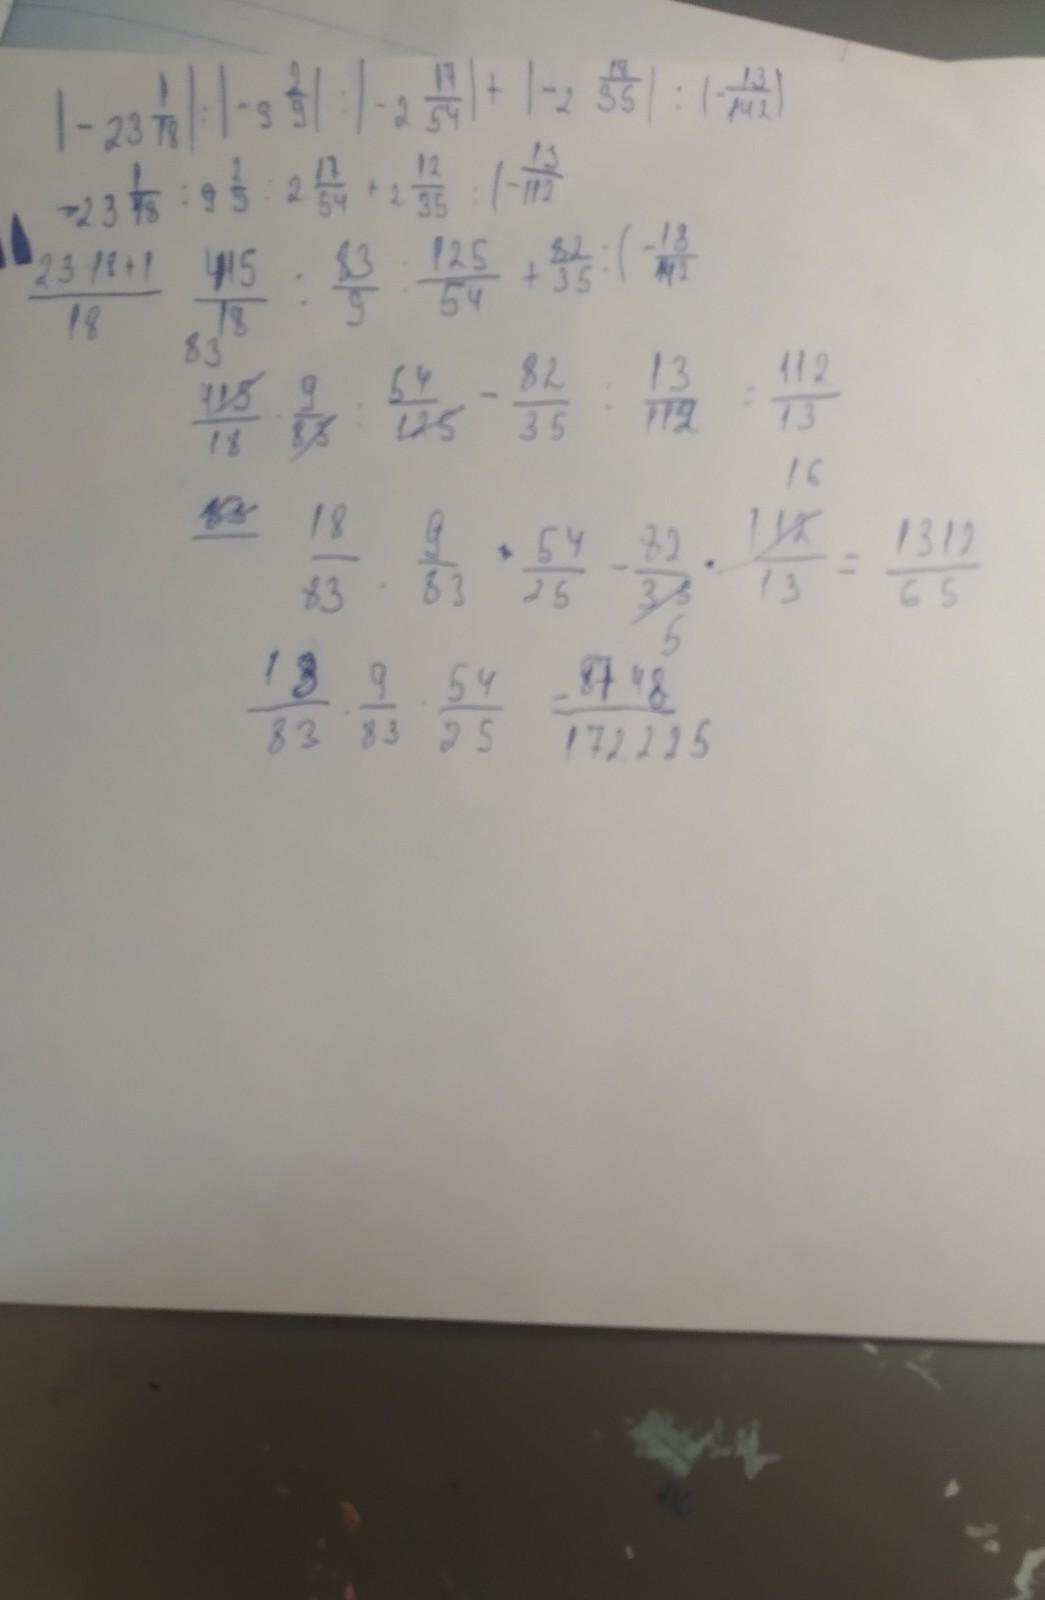 |-23 1/18| : |-9 2/9| : |-2 17/54| + |-2 12/35| : (-13/112)
-23 1/18 : 9 2/9 : 2 17/54 + 2 12/35 : (-13/112
23·18+1/18 415/18 : 83/9 : 125/54 + 82/35 : (-13/112
83
415/18 · 9/83 : 54/125 - 82/35 : 13/112 = 112/13
16
83 18/83 · 9/83 · 54/25 - 82/35 · 112/13 = 1312/65
5
18/83 · 9/83 · 54/25 -8748/172225